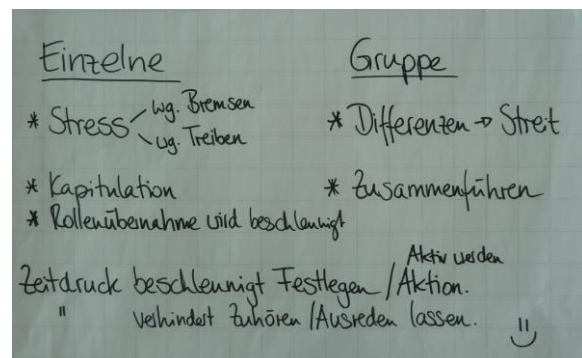 Einzelne
* Stress wg. Bremsen
wg. Treiben
* Kapitulation
* Rollenübernahme wird beschleunigt
Gruppe
* Differenzen → Streit
* Zusammenführen
Zeitdruck beschleunigt Festlegen / Aktiv werden
Aktion.
" verhindert Zuhören / Ausreden lassen.